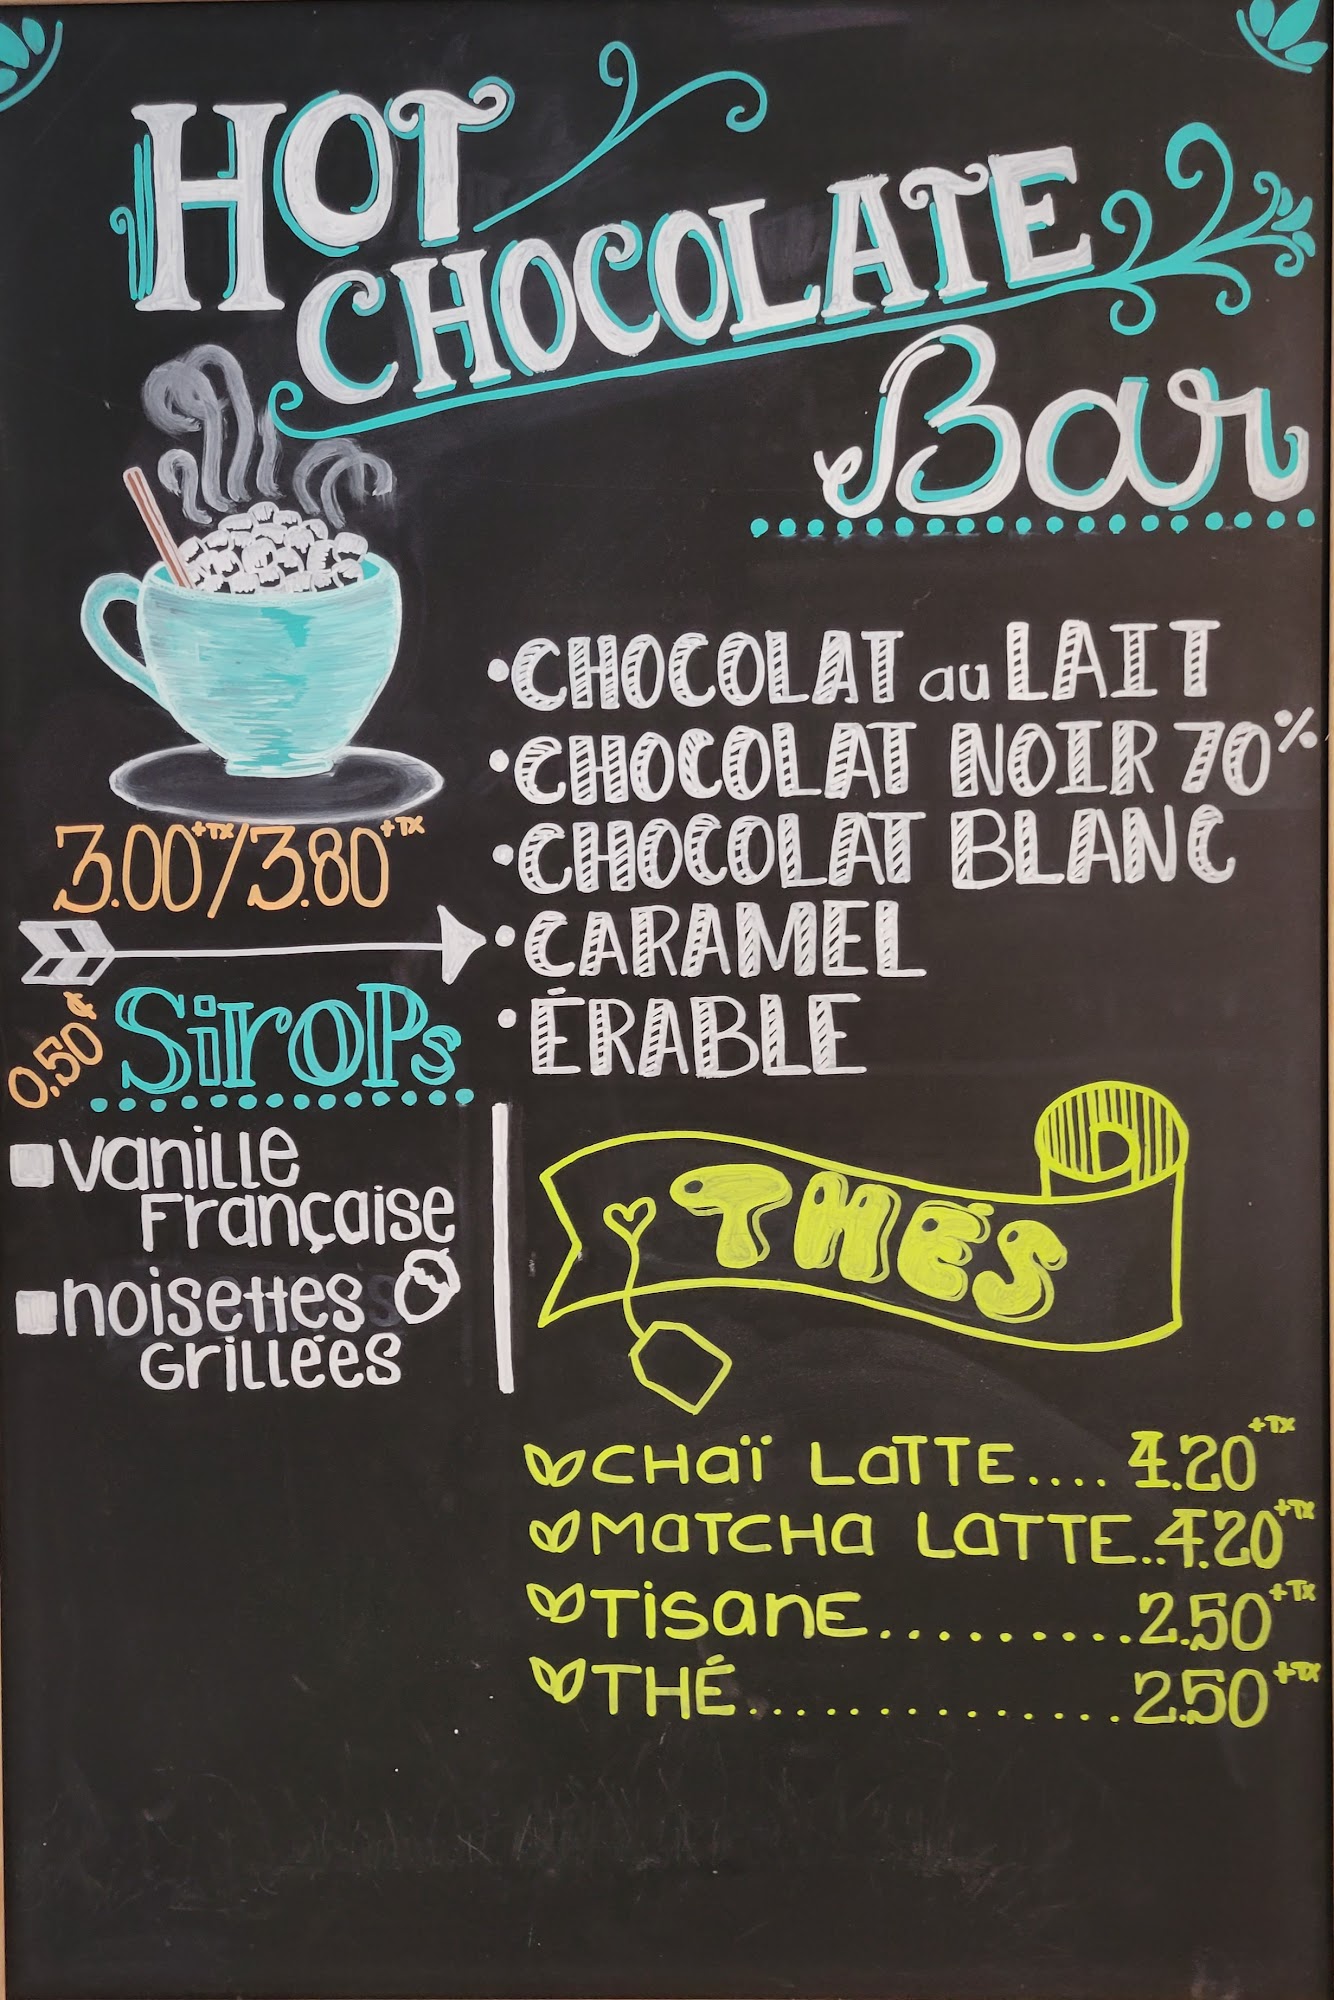 HOT
CHOCOLATE
Bar
•CHOCOLAT au LAIT
•CHOCOLAT NOIR 70%
•CHOCOLAT BLANC
•CARAMEL
•ÉRABLE
3.00+TX/3.80+TX
0.50¢ SiroPs
vanille
Française
noisettes
Grillées
THÉS
CHaï LaTTE.... 4.20+TX
MaTCHa LaTTE..4.20+TX
TisanE.........2.50+TX
THÉ..............2.50+TX